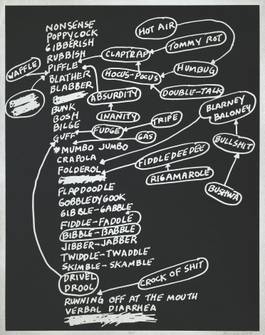 NONSENSE
POPPYCOCK
GIBBERISH
RUBBISH
PIFFLE
BLATHER
BLABBER
BUNK
BOSH
BILGE
GUFF
MUMBO JUMBO
CRAPOLA
FOLDEROL
FLAPDOODLE
GOBBLEDYGOOK
GIBBLE-GABBLE
FIDDLE-FADDLE
BIBBLE-BABBLE
JIBBER-JABBER
TWIDDLE-TWADDLE
SKIMBLE-SKAMBLE
DRIVEL
DROOL
RUNNING OFF AT THE MOUTH
VERBAL DIARRHEA
WAFFLE
HOT AIR
TOMMY ROT
CLAPTRAP
HOCUS-POCUS
HUMBUG
DOUBLE-TALK
ABSURDITY
INANITY
TRIPE
FUDGE
GAS
BLARNEY
BALONEY
BULLSHIT
BUSHWA
FIDDLEDEEDEE
RIGAMAROLE
CROCK OF SHIT